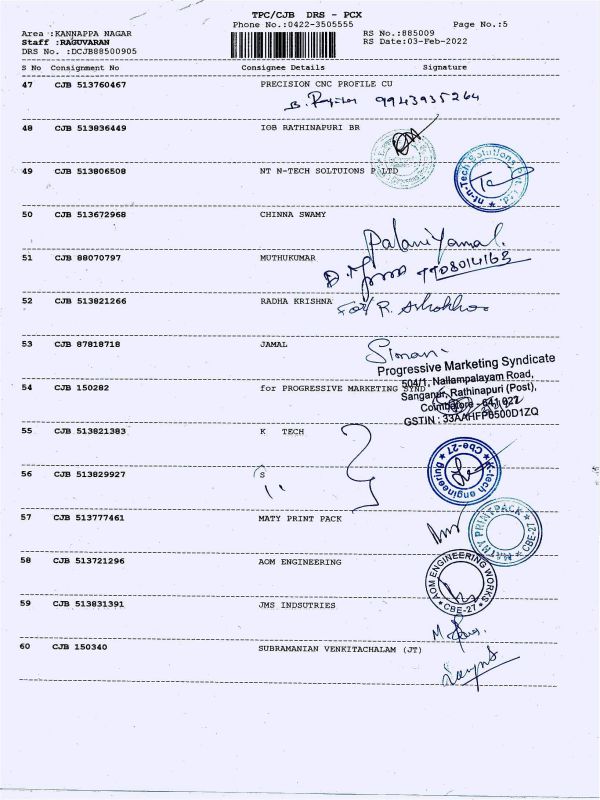 TPC/CJB DRS - PCX
Phone No.:0422-3505555 Page No.:5
Area :KANNAPPA NAGAR RS No.:885009
Staff :RAGUVARAN RS Date:03-Feb-2022
DRS No. :DCJB88500905
S No Consignment No Consignee Details Signature
47 CJB 513760467 PRECISION CNC PROFILE CU
9943935264
48 CJB 513836449 IOB RATHINAPURI BR
49 CJB 513806508 NT N-TECH SOLTUIONS P LTD
nt-n-Tech Solutions Pvt. Ltd.
50 CJB 513672968 CHINNA SWAMY
Palaniyamal.
51 CJB 88070797 MUTHUKUMAR
52 CJB 513821266 RADHA KRISHNA
For R.
53 CJB 87818718 JAMAL
Simon.
Progressive Marketing Syndicate
504/1, Nallampalayam Road,
Sanganur, Rathinapuri (Post),
Coimbatore - 641 027
54 CJB 150282 for PROGRESSIVE MARKETING SYND
55 CJB 513821383 K TECH
K-tech engineering Cbe-27
56 CJB 513829927 S
57 CJB 513777461 MATY PRINT PACK
PRINT PACK CBE-27
58 CJB 513721296 AOM ENGINEERING
AOM ENGINEERING WORKS CBE-27
59 CJB 513831391 JMS INDSUTRIES
60 CJB 150340 SUBRAMANIAN VENKITACHALAM (JT)